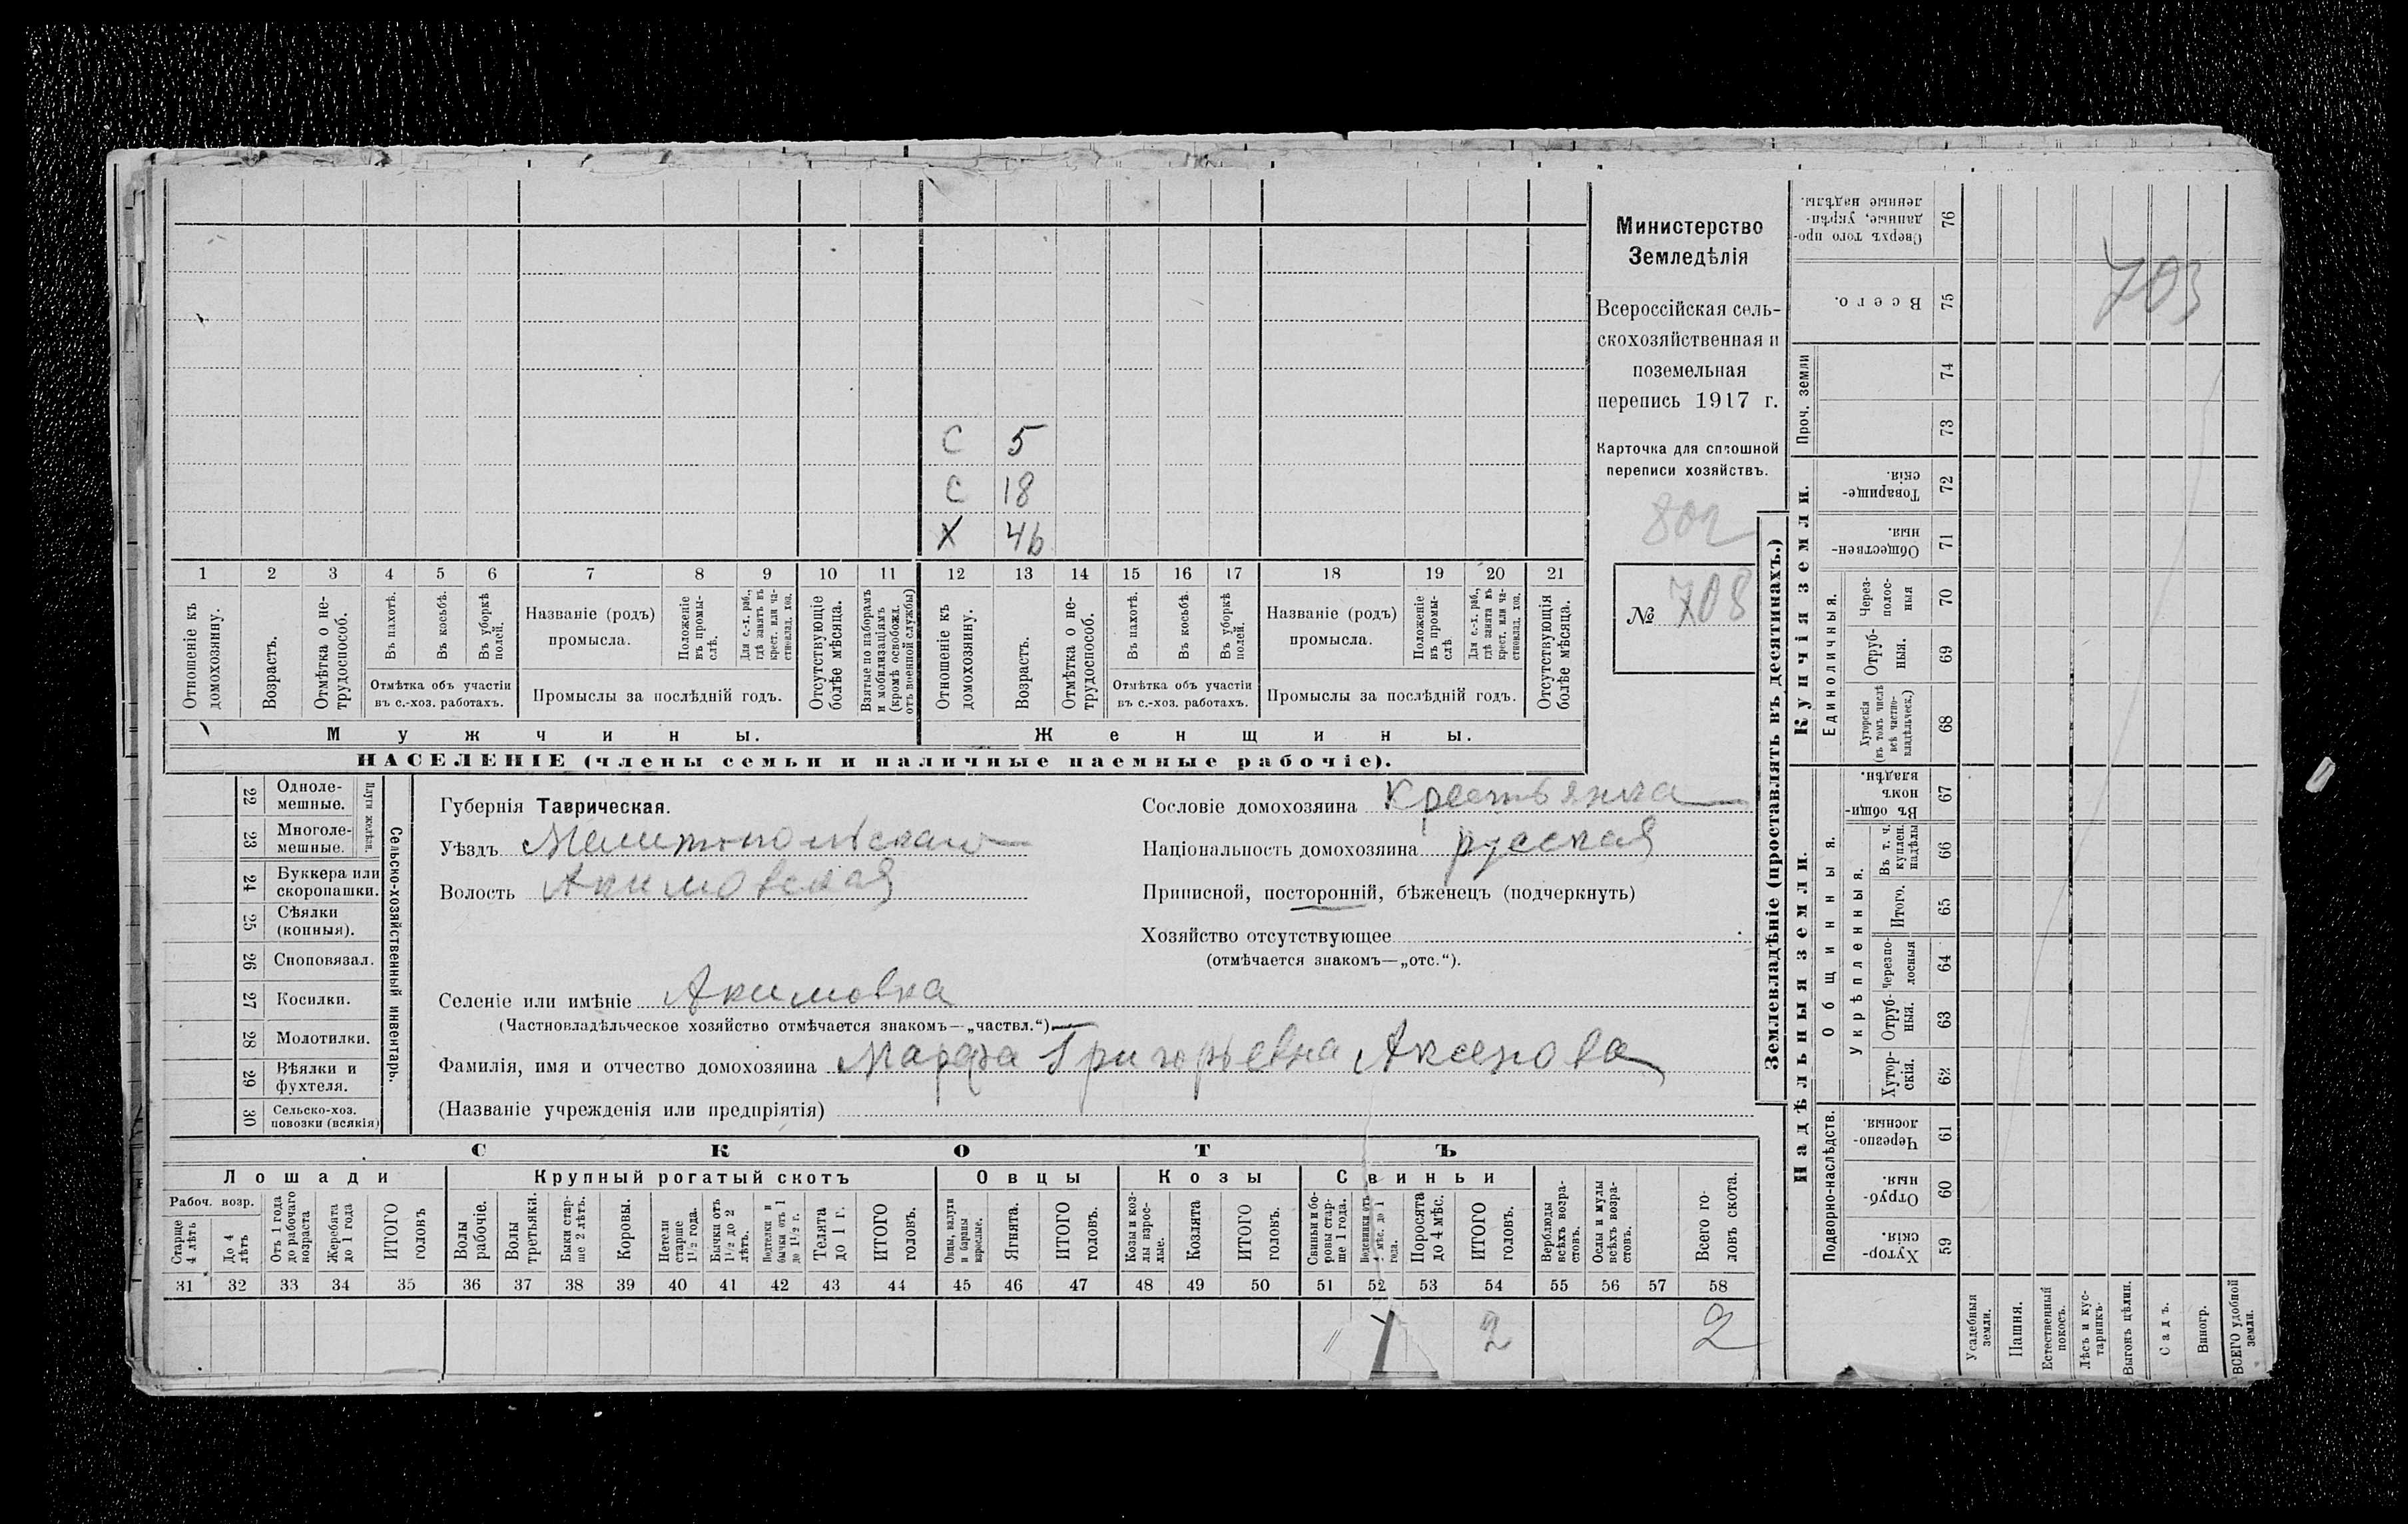 С 5
С 18
Х 46
1 2 3 4 5 6 7 8 9 10 11 12 13 14 15 16 17 18 19 20 21
Отношеніе къ домохозяину.
Возрастъ.
Отмѣтка о не-трудоспособ.
Въ пахотѣ.
Въ косьбѣ.
Въ уборкѣ полей.
Отмѣтка объ участіи
въ с.-хоз. работахъ.
Названіе (родъ)
промысла.
Положеніе въ промы-слѣ.
Для с.-х. раб., гдѣ занятъ въ крест. или ча-стновлад. хоз.
Промыслы за послѣдній годъ.
Отсутствующіе болѣе мѣсяца.
Взятые по наборамъ и мобилизаціямъ (кромѣ освобожд. отъ военной службы)
Отношеніе къ домохозяину.
Возрастъ.
Отмѣтка о не-трудоспособ.
Въ пахотѣ.
Въ косьбѣ.
Въ уборкѣ полей.
Отмѣтка объ участіи
въ с.-хоз. работахъ.
Названіе (родъ)
промысла.
Положеніе въ промы-слѣ
Для с.-х. раб., гдѣ занята въ крест. или ча-стновлад. хоз.
Промыслы за послѣдній годъ.
Отсутствующія болѣе мѣсяца.
Мужчины.
Женщины.
НАСЕЛЕНІЕ (члены семьи и наличные наемные рабочіе).
Министерство
Земледѣлія
Всероссійская сель-
скохозяйственная и
поземельная
перепись 1917 г.
Карточка для сплошной
переписи хозяйствъ.
802
№ 708
22 Одноле-мешные.
23 Многоле-мешные.
Плуги желѣзн.
24 Буккера или скоропашки.
25 Сѣялки (конныя).
26 Сноповязал.
27 Косилки.
28 Молотилки.
29 Вѣялки и фухтеля.
30 Сельско-хоз. повозки (всякія)
Сельско-хозяйственный инвентарь.
Губернія Таврическая.
Уѣздъ Мелитопольскаго
Волость Акимовская
Сословіе домохозяина Крестьянка
Національность домохозяина русская
Приписной, посторонній, бѣженецъ (подчеркнуть)
Хозяйство отсутствующее
(отмѣчается знакомъ—„отс.“).
Селеніе или имѣніе Акимовка
(Частновладѣльческое хозяйство отмѣчается знакомъ—„частвл.“)
Фамилія, имя и отчество домохозяина Марфа Григорьевна Аксенова
(Названіе учрежденія или предпріятія)
СКОТЪ
Лошади
Рабоч. возр.
Старше 4 лѣтъ
До 4 лѣтъ.
Отъ 1 года до рабочаго возраста
Жеребята до 1 года
ИТОГО головъ
Крупный рогатый скотъ
Волы рабочіе.
Волы третьяки.
Быки стар-ше 2 лѣтъ.
Коровы.
Нетели старше 1 1/2 года.
Бычки отъ 1 1/2 до 2 лѣтъ.
Подтелки и бычки отъ 1 до 1 1/2 г.
Телята до 1 г.
ИТОГО головъ.
Овцы
Овцы, валухи и бараны взрослые.
Ягнята.
ИТОГО головъ.
Козы
Козы и коз-лы взрос-лые.
Козлята
ИТОГО головъ.
Свиньи
Свиньи и бо-ровы стар-ше 1 года.
Подсвинки отъ 4 мѣс. до 1 года.
Поросята до 4 мѣс.
ИТОГО головъ.
Верблюды всѣхъ возра-стовъ.
Ослы и мулы всѣхъ возра-стовъ.
Всего го-ловъ скота.
31 32 33 34 35 36 37 38 39 40 41 42 43 44 45 46 47 48 49 50 51 52 53 54 55 56 57 58
2 2
Землевладѣніе (проставлять въ десятинахъ.)
Купчія земли.
Надѣльныя земли.
76 Сверхъ того про-данные, укрѣп-ленные надѣлы.
75 Всего.
Проч. земли
74
73
72 Товарище-скія.
71 Обществен-ныя.
Единоличныя.
70 Через-полос-ныя
69 Отруб-ныя.
68 Хуторскія (въ томъ числѣ всѣ частно-владѣльческ.)
Общинныя.
67 Въ общин-номъ владѣн.
Укрѣпленныя.
66 Въ т. ч. куплен. надѣлы
65 Итого.
64 Черезпо-лосныя
63 Отруб-ныя.
62 Хутор-скія.
Подворно-наслѣдств.
61 Черезпо-лосныя.
60 Отруб-ныя.
59 Хутор-скія.
Усадебныя земли.
Пашня.
Естественный покосъ.
Лѣсъ и кус-тарникъ.
Выгонъ цѣлин.
Садъ.
Виногр.
ВСЕГО удобной земли.
703